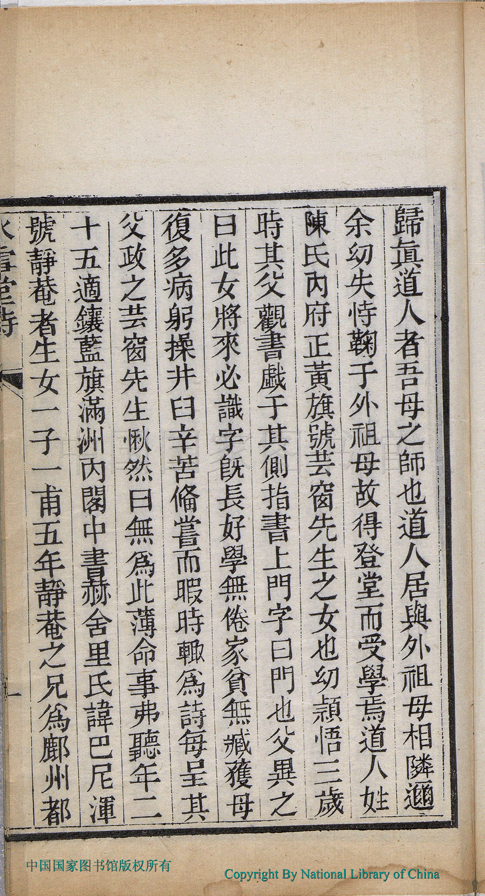 歸眞道人者吾母之師也道人居與外祖母相隣邇
余幼失恃鞠于外祖母故得登堂而受學焉道人姓
陳氏內府正黃旗號芸窗先生之女也幼頴悟三歲
時其父觀書戱于其側指書上門字曰門也父異之
曰此女將來必識字旣長好學無倦家貧無臧獲母
復多病躬操井臼辛苦備嘗而暇時輙爲詩每呈其
父政之芸窗先生愀然曰無爲此薄命事弗聽年二
十五適鑲藍旗滿洲內閣中書赫舍里氏諱巴尼渾
號靜菴者生女一子一甫五年靜菴之兄爲鄜州都
冰雪堂詩
中国国家图书馆版权所有
Copyright By National Library of China